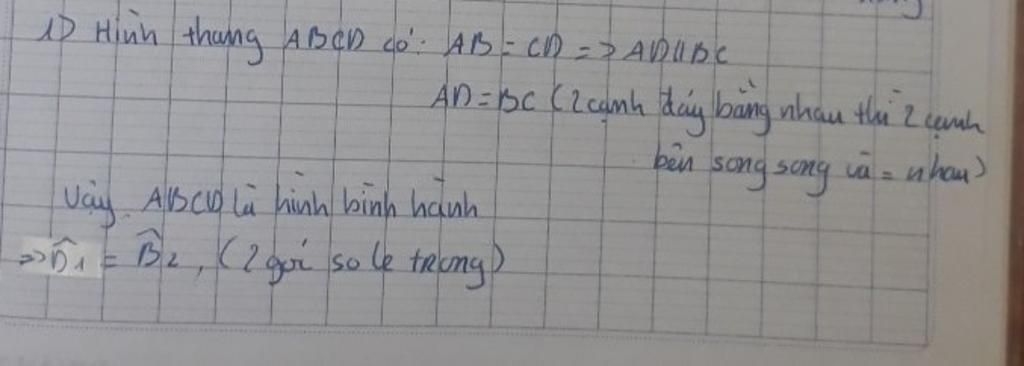 1) Hình thang ABCD có: AB = CD => AD//BC
AD = BC (2 cạnh đáy bằng nhau thì 2 cạnh
bên song song và = nhau)
Vậy ABCD là hình bình hành
=> D̂1 = B̂2, (2 góc so le trong)